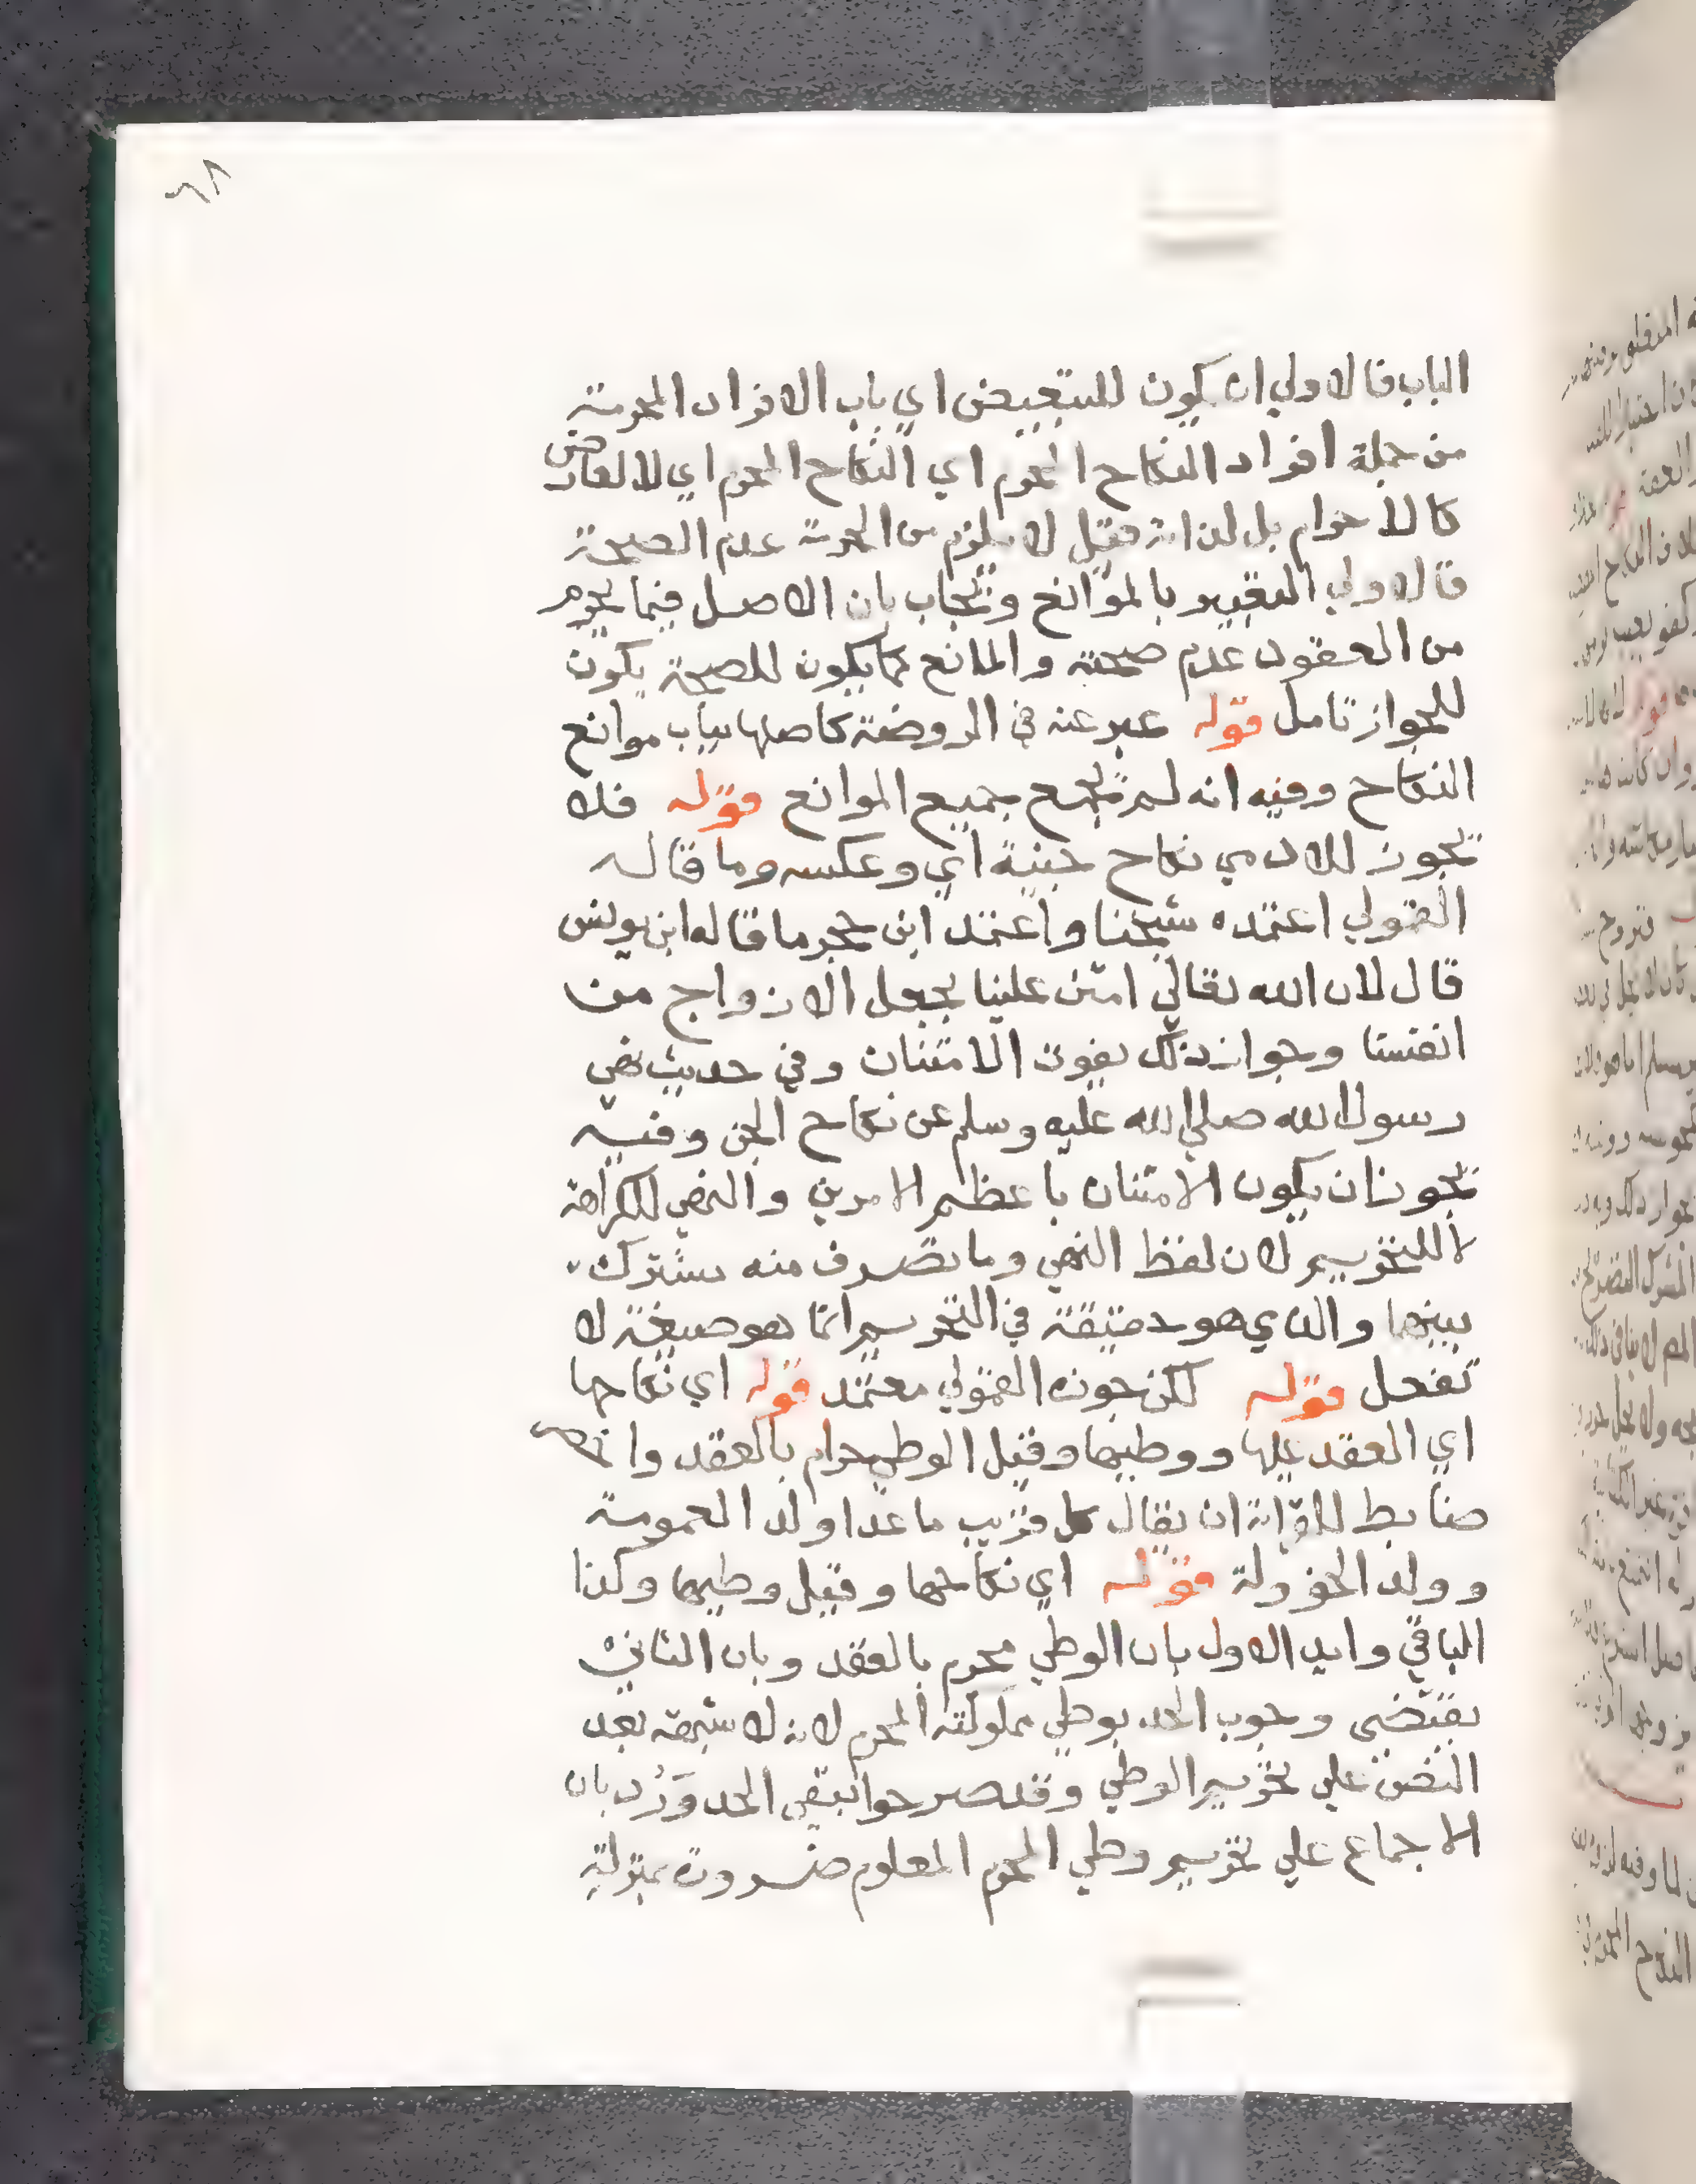 ٦٨
الباب فالاولي ان يكون للتبعيض اي باب الافراد المحرمة
من جملة افراد النكاح المحرم اي النكاح المحرم اي لا لعارض
كالاحرام بل لذاته فقيل لا يلزم من الحرمة عدم الصحة
فالاولي التعبير بالموانع ويجاب بان الاصل فيما يحرم
من العقود عدم صحته والمانع كما يكون للصحة يكون
للجواز تامل قوله عبر عنه في الروضة كاصلها بباب موانع
النكاح وفيه انه لم يجمع جميع الموانع قوله فلا
يجوز للادمي نكاح جنية اي وعكسه وما قاله
القمولي اعتمده شيخنا واعتمد ابن حجر ما قاله ابن يونس
قال لان الله تعالي امتن علينا بجعل الازواج من
انفسنا وجواز ذلك يفوت الامتنان وفي حديث نهي
رسول الله صلي الله عليه وسلم عن نكاح الجن وفيه
يجوز ان يكون الامتنان باعظم الامرين والنهي للكراهة
لا للتحريم لان لفظ النهي وما تصرف منه مشترك
بينهما والذي هو حقيقة في التحريم انما هو صيغة لا
تفعل قوله لكن جوزه القمولي معتمد قوله اي نكاحها
اي العقد عليها ووطيها وقيل الوطي حرام بالعقد
ضابط للقرابة ان يقال كل قريب ما عدا ولد العمومة
وولد الخؤولة قوله اي نكاحها وقيل وطيها وكذا
الباقي وايد الاول بان الوطي محرم بالعقد وبان الثاني
يقتضي وجوب الحد بوطي مملوكته المحرم لانه لا شبهة بعد
النص علي تحريم الوطي وقد صرحوا بنفي الحد ورُد بان
الاجماع علي تحريم وطي المحرم المعلوم ضرورة بمنزلة